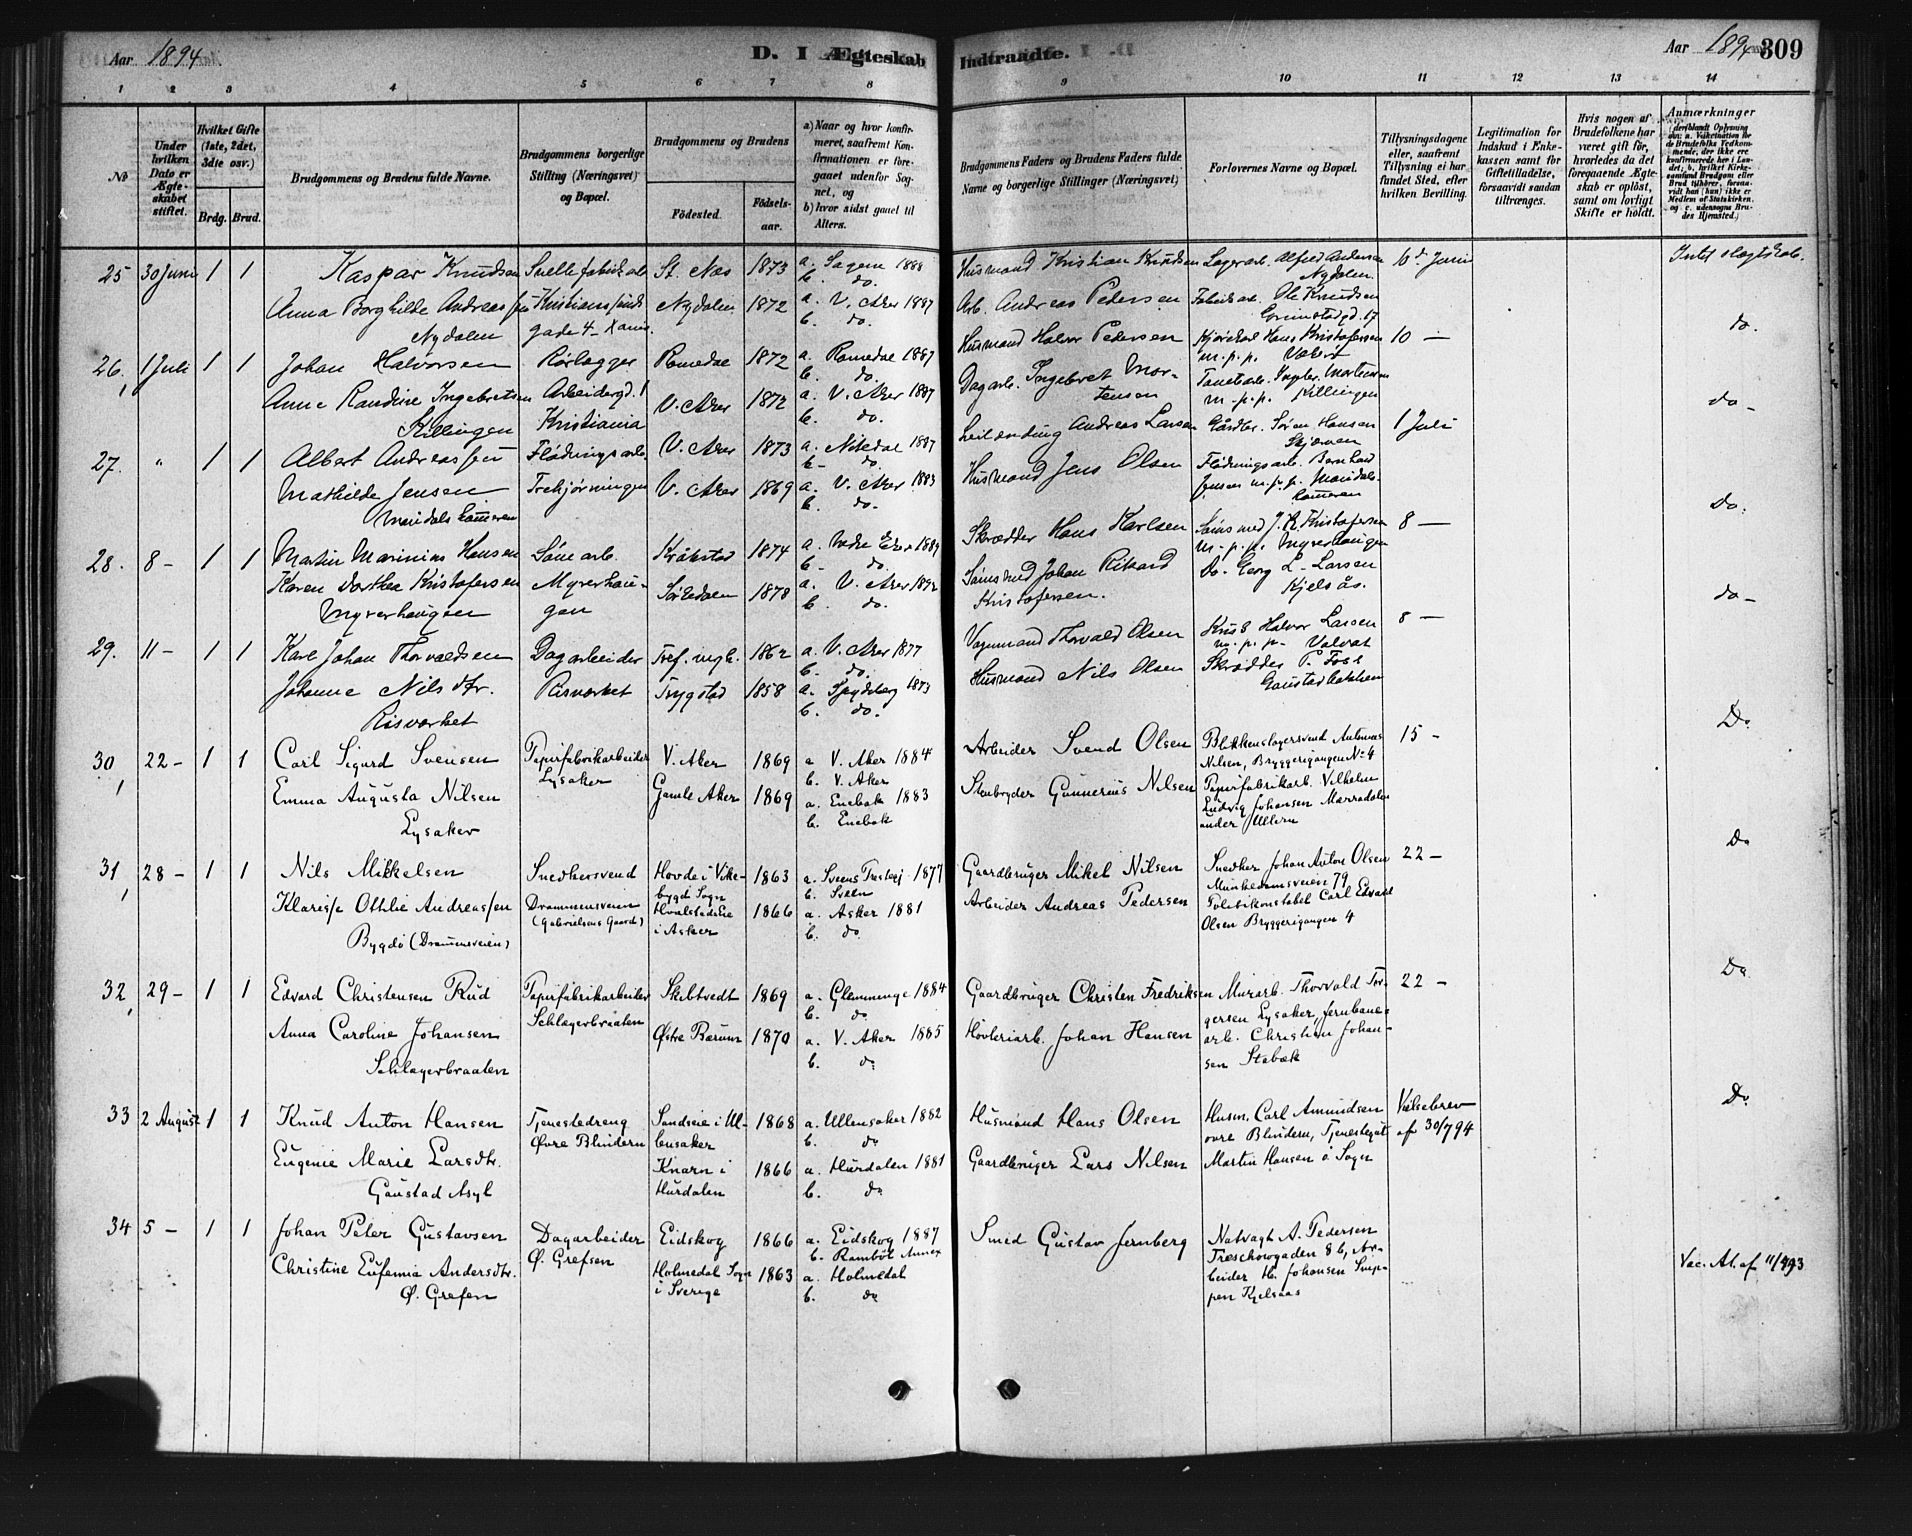 Aar 1894.
D. I Ægteskab Indtraadte.
Aar 1894 309
1 2 3 4 5 6 7 8 9 10 11 12 13 14
No
Under hvilken Dato er Ægteskabet stiftet.
Hvilket Gifte (1ste, 2det, 3die osv.)
Brdg. Brud.
Brudgommens og Brudens fulde Navne.
Brudgommens borgerlige Stilling (Næringsvei) og Bopæl.
Brudgommens og Brudens
Födested.
Födselsaar.
a) Naar og hvor konfirmeret, saafremt Konfirmationen er foregaaet udenfor Sognet, og
b) hvor sidst gaaet til Alters.
Brudgommens Faders og Brudens Faders fulde Navne og borgerlige Stillinger (Næringsvei)
Forlovernes Navne og Bopæl.
Tillysningsdagene eller, saafremt Tillysning ei har fundet Sted, efter hvilken Bevilling.
Legitimation for Indskud i Enkekassen samt for Giftetilladelse, forsaavidt saadan tiltrænges.
Hvis nogen af Brudefolkene har været gift för, hvorledes da det foregaaende Ægteskab er oplöst, samt om lovligt Skifte er holdt.
Anmærkninger
25 30 Juni 1 1 Kaspar Knudsen St. Næs 1873 a. Sagene 1888 b. do. Husmand Kristian Knudsen Lagerarb. Alfred Andersen Nydalen 10d Juni
Anna Borghilde Andreassen Nydalen gade 4 Nydalen 1872 a. V. Aker 1887 b. do. Arb. Andreas Pedersen Fabrikarb. Ole Knudsen Grimstadgd. 17 do.
26, 1 Juli 1 1 Johan Halvorsen Rørlægger Romedal 1872 a. Romedal 1887 b. do. Husmand Halvor Pedersen Hans Kristofersen m.p.p. 10 —
Anne Randine Ingebretsen Killingen Arbeidergd. 1 Kristiania V. Aker 1872 a. V. Aker 1887 b. do. Dagarb. Ingebret Mortensen m.p.p. Killingen do -
27. " 1 1 Albert Andreassen Flødningsarb. V. Aker 1873 a. Nitedal 1887 b. do. Leilænding Andreas Larsen Gårdbr. Søren Hansen 1 Juli
Mathilde Jensen V. Aker 1869 a. V. Aker 1883 b. do. Husmand Jens Olsen Flødningsarb. Bernhard Jensen m.p.p. Do.
28. 8 - 1 1 Martin Marinius Hansen Kråkstad 1874 b. do. Skrædder Hans Karlsen m.p.p. Myrerhaugen 8 —
Karen Dorthea Kristofersen Myrerhaugen Myrerhaugen Sørkedalen 1878 a. V. Aker 1892 b. do. Johan Rikard Kristofersen. Do. Georg L. Larsen Kjelsås. do -
29. 11 - 1 1 Karl Johan Thorvaldsen Dagarbeider 1862 a. V. Aker 1877 b. do. Vognmand Thorvald Olsen Halvor Larsen m.p.p. 8 —
Johanne Nilsdtr. Risværket Risværket Trygstad 1858 a. Spydeberg 1873 b. do. Husmand Nils Olsen Skrædder P. Foss Gaustadbakken Do
30, 22 - 1 1 Carl Sigurd Svensen Papirfabrikarbeider Lysaker V. Aker 1869 a. V. Aker 1884 b. V. Aker Arbeider Svend Olsen Blikkenslagersvend Antonius Nilsen, Bryggerigangen No 4 15 -
Emma Augusta Nilsen Lysaker Gamle Aker 1869 a. Enebak 1883 b. Enebak Stenbryder Gunnerius Nilsen Papirfabrikarb. Vilhelm Ludvig Johansen Marradalen under Ullern Do
31, 28 - 1 1 Nils Mikkelsen Snedkersvend Hovde i Vikebygd Sogn 1863 a. Sveens Prstgj. 1877 b. Sveen Gaardbruger Mikel Nilsen Snedker Johan Anton Olsen Munkedamsveien 79 22 -
Klarisse Othlie Andreassen Bygdö (Drammesveien) Drammensveien (Gabrielsens Gaard) Hvalstadeie i Asker 1866 a. Asker 1881 b. do Arbeider Andreas Pedersen Politikonstabel Carl Edvard Olsen Bryggerigangen 4 Do
32, 29 - 1 1 Edvard Christensen Rud Papirfabrikarbeider Schlagerbraaten Skibtvedt 1869 a. Glemminge 1884 b. do Gaardbruger Christen Fredriksen Murarb. Thorvald Torgersen Lysaker, Jernbanearb. Christian Johansen Stabæk 22 -
Anna Caroline Johansen Schlagerbraaten Østre Bærum 1870 a. V. Aker 1885 b. do Høvleriarb. Johan Hansen Do
33 2 August 1 1 Knud Anton Hansen Tjenestedreng Øvre Blindern Sandseie i Ullensaker 1868 a. Ullensaker 1882 b. do Husmand Hans Olsen Husm. Carl Amundsen øvre Blindern, Tjenestegut Martin Hansen ö Sogn Vielsebrev af 30/7 94
Eugenie Marie Larsdtr. Gaustad Asyl Knarn i Hurdalen 1866 a. Hurdalen 1881 b. do Gaardbruger Lars Nilsen
34 5 - 1 1 Johan Peter Gustavsen Dagarbeider Ø. Grefsen Eidskog 1866 a. Eidskog 1887 b. Annex Smed Gustav Jernberg Natvagt A. Pedersen Treschowgaden 8b, Arbeider H. Johansen Snippen Kjelsaas
Christine Eufemia Andersdtr. Ø. Grefsen Holmedal Sogn i Sverige 1863 a. Holmedal b. do Vac. At. af